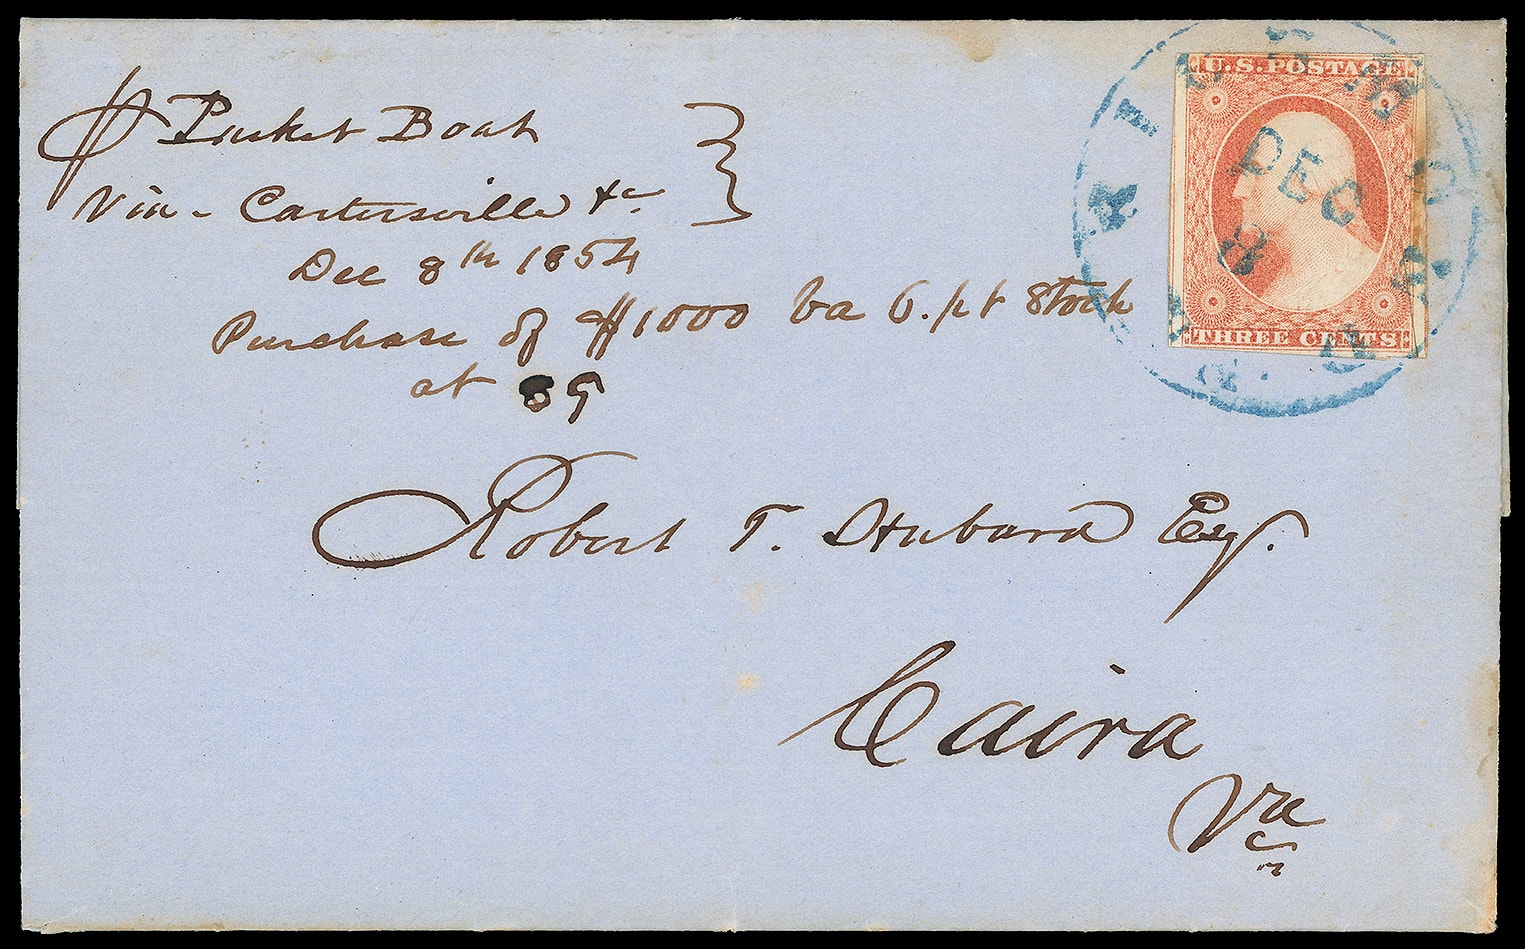 p Packet Boat
Via - Cartersville &c
Dec 8th 1854
Purchase of $1000 Va 6.pt Stock
at 89
Robert T. Hubard Esq.
Caira
Va
U.S. POSTAGE
THREE CENTS
RICHMOND
DEC
8